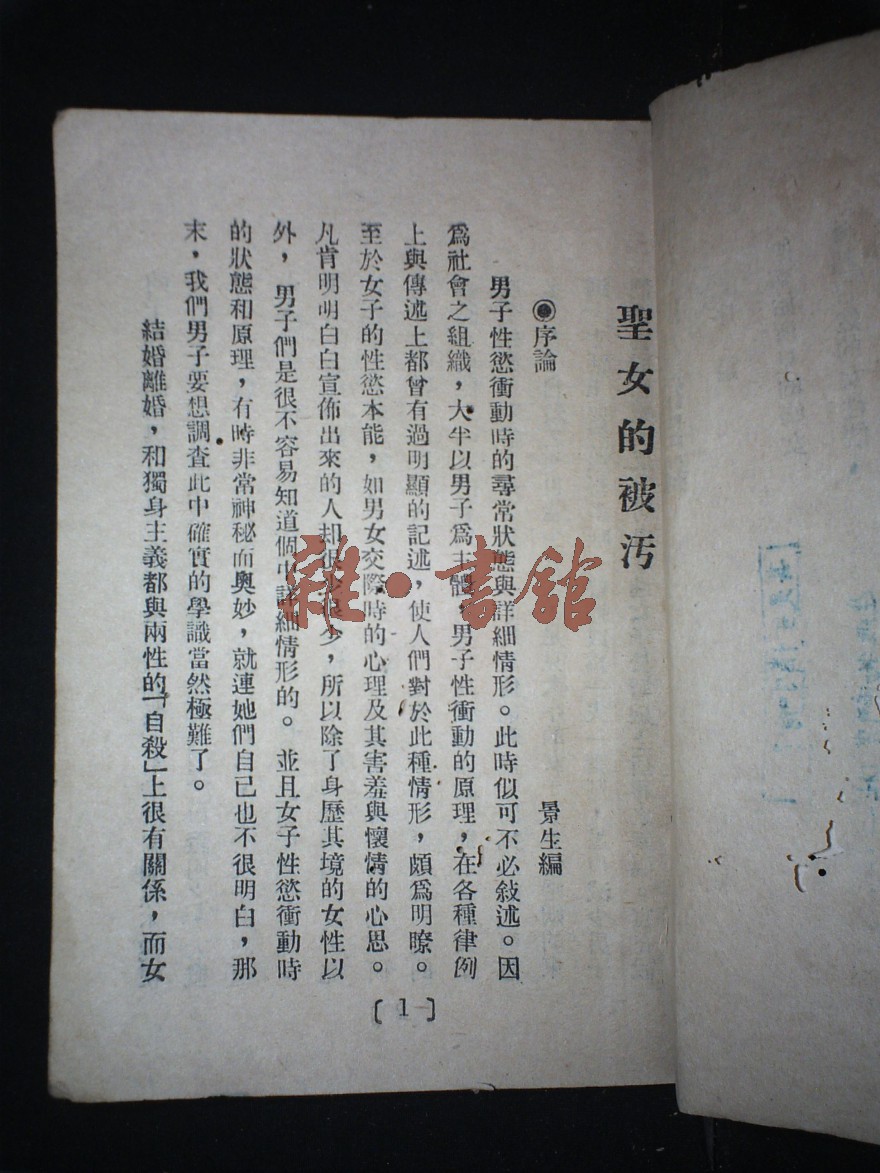 聖女的被汚
◉序論
景生編
男子性慾衝動時的尋常狀態與詳細情形。此時似可不必敍述。因
爲社會之組織，大半以男子爲主體，男子性衝動的原理，在各種律例
上與傳述上都曾有過明顯的記述，使人們對於此種情形，頗爲明瞭。
至於女子的性慾本能，如男女交際時的心理及其害羞與懷情的心思。
凡肯明明白白宣佈出來的人却很少很少，所以除了身歷其境的女性以
外，男子們是很不容易知道個中詳細情形的。並且女子性慾衝動時
的狀態和原理，有時非常神秘而奧妙，就連她們自已也不很明白，那
末，我們男子要想調查此中確實的學識當然極難了。
結婚離婚，和獨身主義都與兩性的「自殺」上很有關係，而女
〔1〕
雜·書館